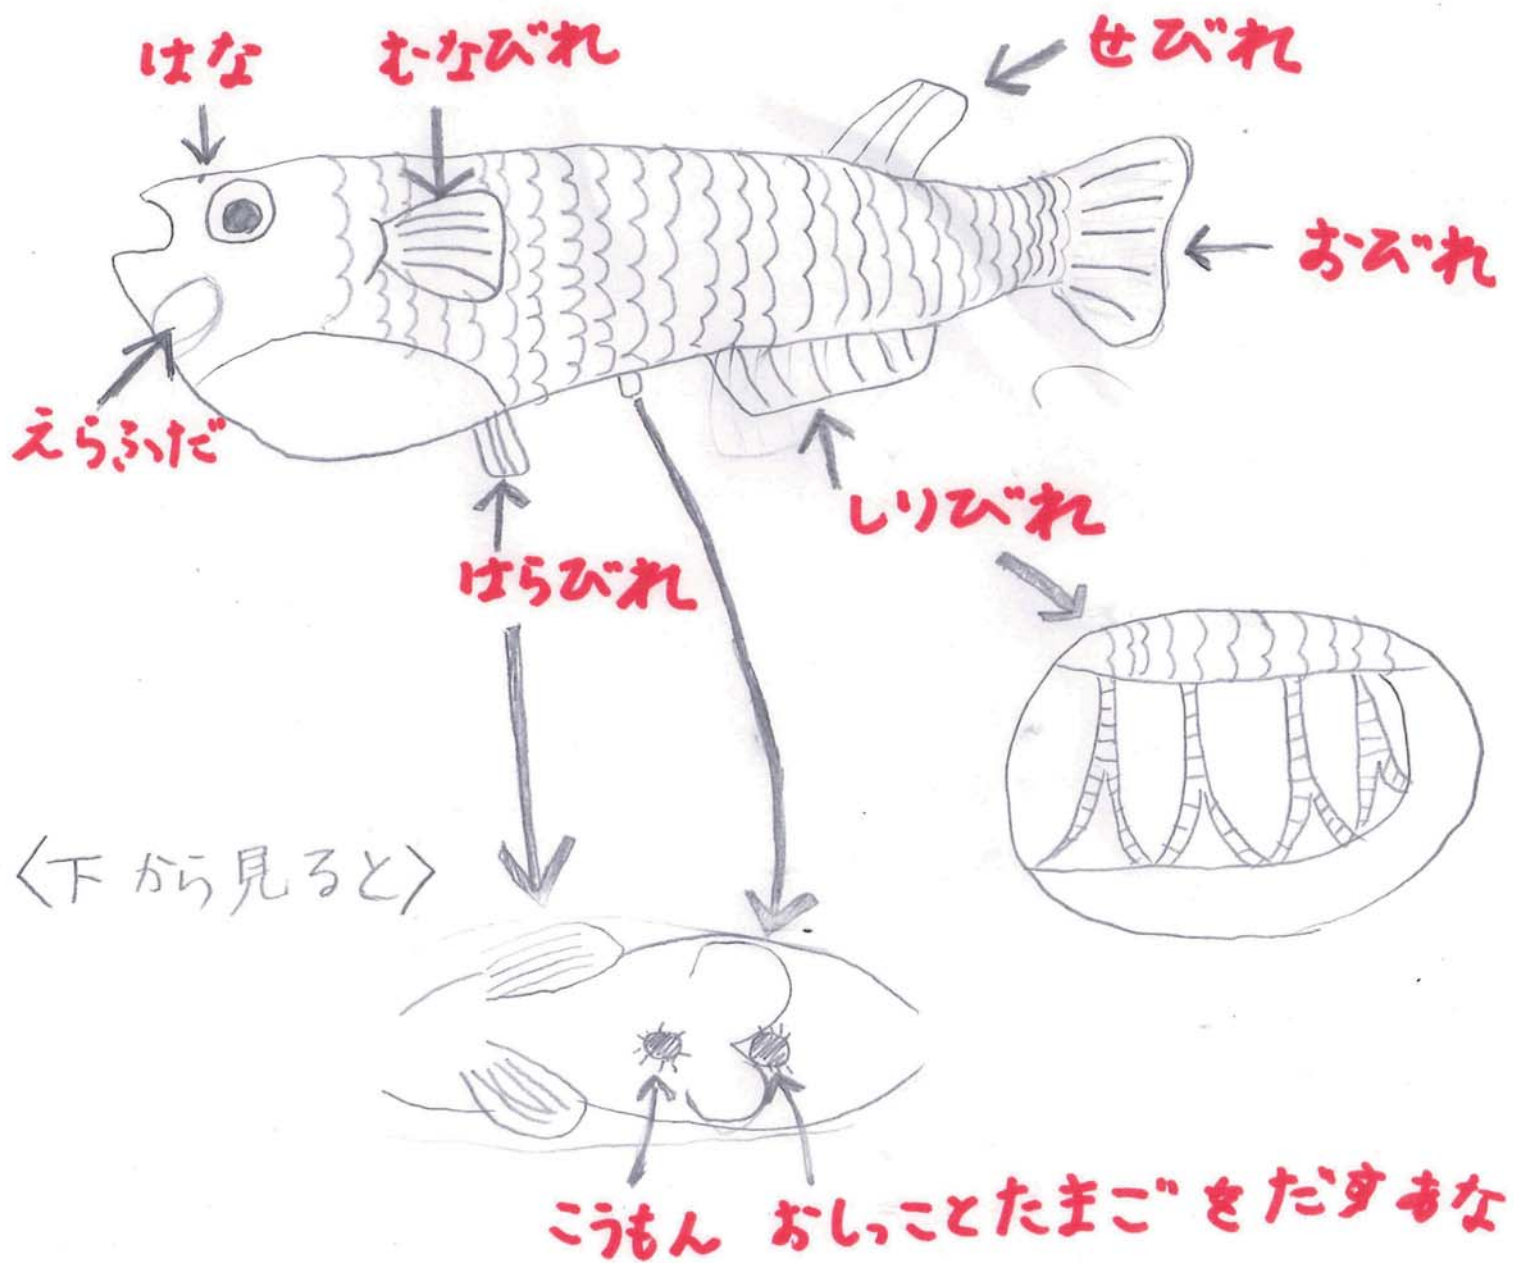 はな
むなびれ
せびれ
おびれ
えらふだ
しりびれ
はらびれ
〈下から見ると〉
こうもん
おしっことたまごをだすあな